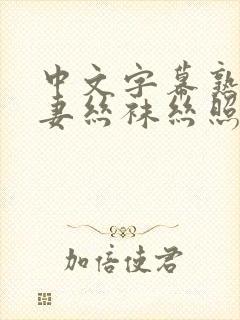 中文字幕熟
妻丝袜丝照
加倍使君